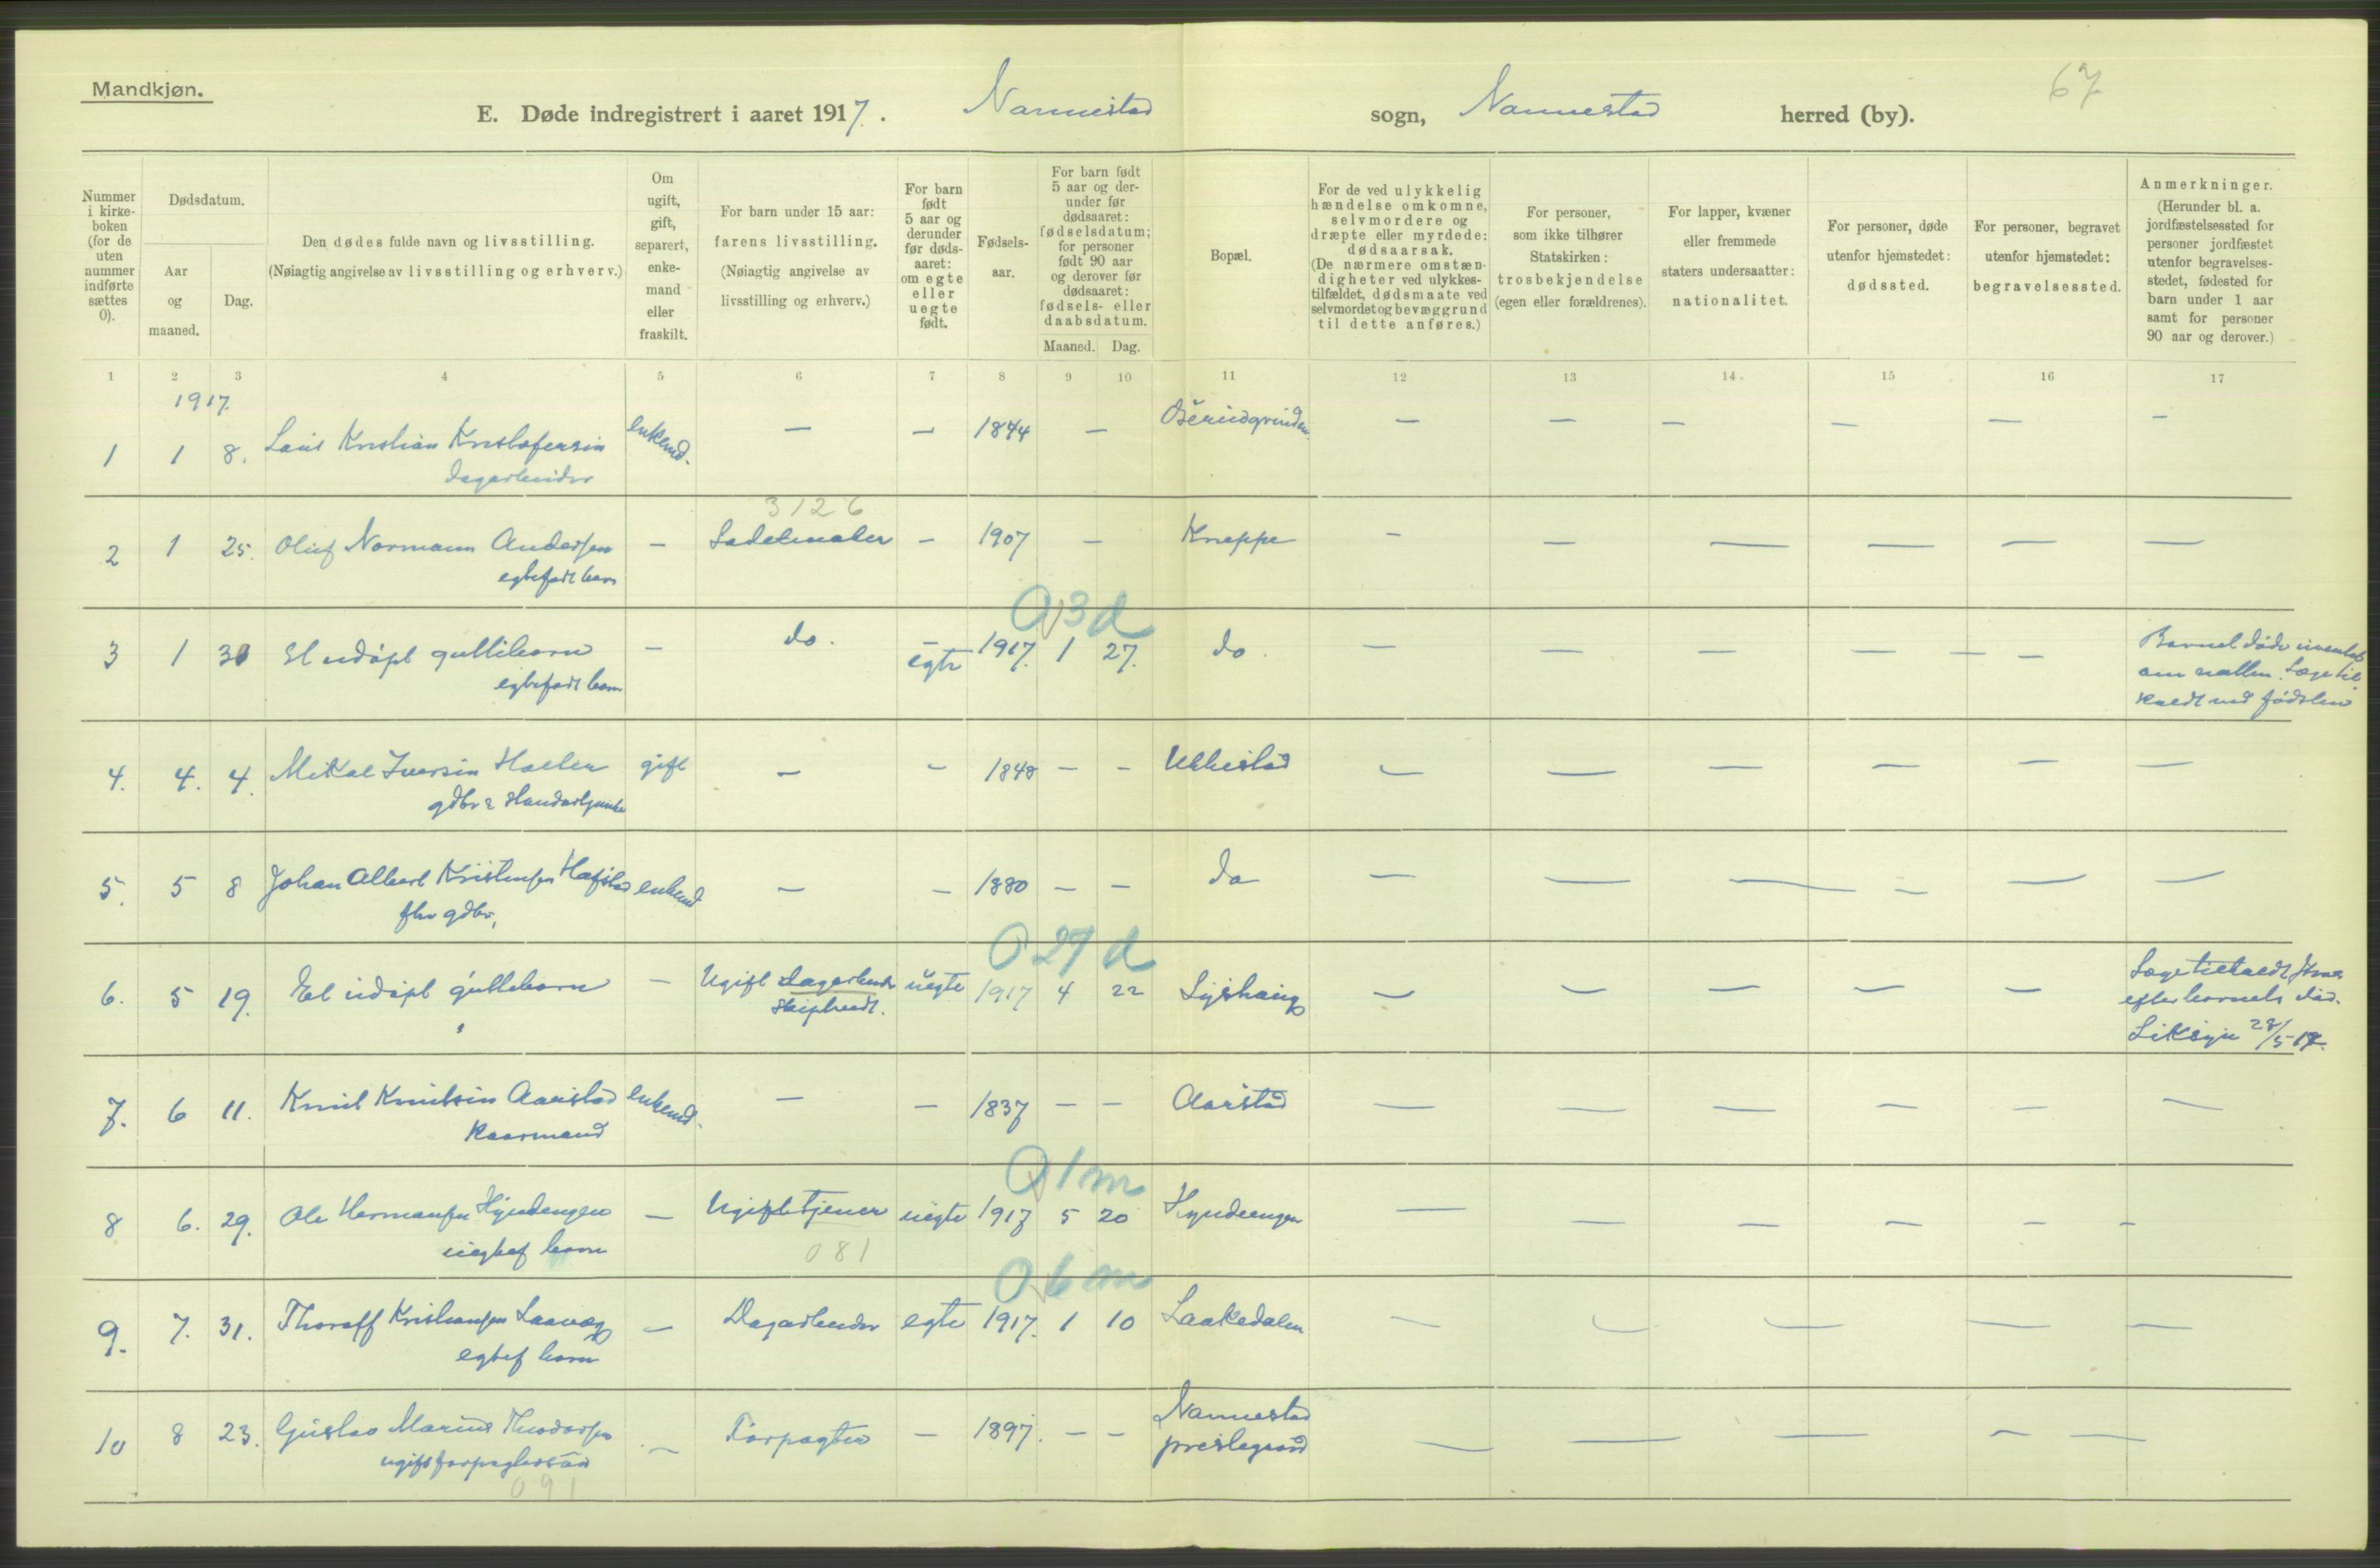 Mandkjøn.
67
E. Døde indregistrert i aaret 1917. Nannestad sogn, Nannestad herred (by).
Nummer i kirkeboken (for de uten nummer indførte sættes 0).
Dødsdatum.
Aar og maaned.
Dag.
Den dødes fulde navn og livsstilling.
(Nøiagtig angivelse av livsstilling og erhverv.)
Om ugift, gift, separert, enkemand eller fraskilt.
For barn under 15 aar: farens livsstilling.
(Nøiagtig angivelse av livsstilling og erhverv.)
For barn født 5 aar og derunder før dødsaaret: om egte eller uegte født.
Fødselsaar.
For barn født 5 aar og derunder før dødsaaret: fødselsdatum; for personer født 90 aar og derover før dødsaaret: fødsels- eller daabsdatum.
Maaned. Dag.
Bopæl.
For de ved ulykkelig hændelse omkomne, selvmordere og dræpte eller myrdede: dødsaarsak.
(De nærmere omstændigheter ved ulykkestilfældet, dødsmaate ved selvmordet og bevæggrund til dette anføres.)
For personer, som ikke tilhører Statskirken: trosbekjendelse (egen eller forældrenes).
For lapper, kvæner eller fremmede staters undersaatter: nationalitet.
For personer, døde utenfor hjemstedet: dødssted.
For personer, begravet utenfor hjemstedet: begravelsessted.
Anmerkninger.
(Herunder bl. a. jordfæstelsessted for personer jordfæstet utenfor begravelsesstedet, fødested for barn under 1 aar samt for personer 90 aar og derover.)
1 2 3 4 5 6 7 8 9 10 11 12 13 14. 15 16 17
1917.
1 1 8. Kristian Kristofersen enkemd. — — 1844 — — — — — — —
dagarbeider
3126
2 1 25. Oluf Normann Andersen — Sadelmaker — 1907 — Kneppe — — — — — —
egtefødt barn
0 3 d
3 1 30 Et udøpt guttebarn — do. egte 1917. 1 27. do. — — — — — — Barnet døde
egtefødt barn om natten. Læge til
kaldt ved fødslen
4. 4. 4. Mikal Iversen gift — — 1848 — — — — — — — —
gdbr &
5. 5 8 Johan Albert Kristensen Hafstad enkemd — — 1880 — — do — — — — — —
fhv gdbr.
0 29 d
6. 5 19. Et udøpt guttebarn — Ugift dagarbeider uegte 1917 4 22 Lyshaug — — — — — Læge tilkaldt straks
efter barnets død.
Liksyn 28/5-17.
7. 6 11. Knut Knutsen Aarstad enkemd. — — 1837 — — Aarstad — — — — — —
Kaarmand
0 1 m
8 6. 29. Ole Hermansen Hyndengen — Ugift tjener uegte 1917 5 20 Hyndeengen — — — — — —
uegtef barn 081
0 6 m
9. 7. 31. Kristiansen — Dagarbeider egte 1917. 1 10 Laakedalen — — — — —
egtef barn
10 8 23. Gustav Marius Theodorsen — Forpagter — 1897. — — Nannestad
ugift forpagtersøn prestegaard — — — — —
091